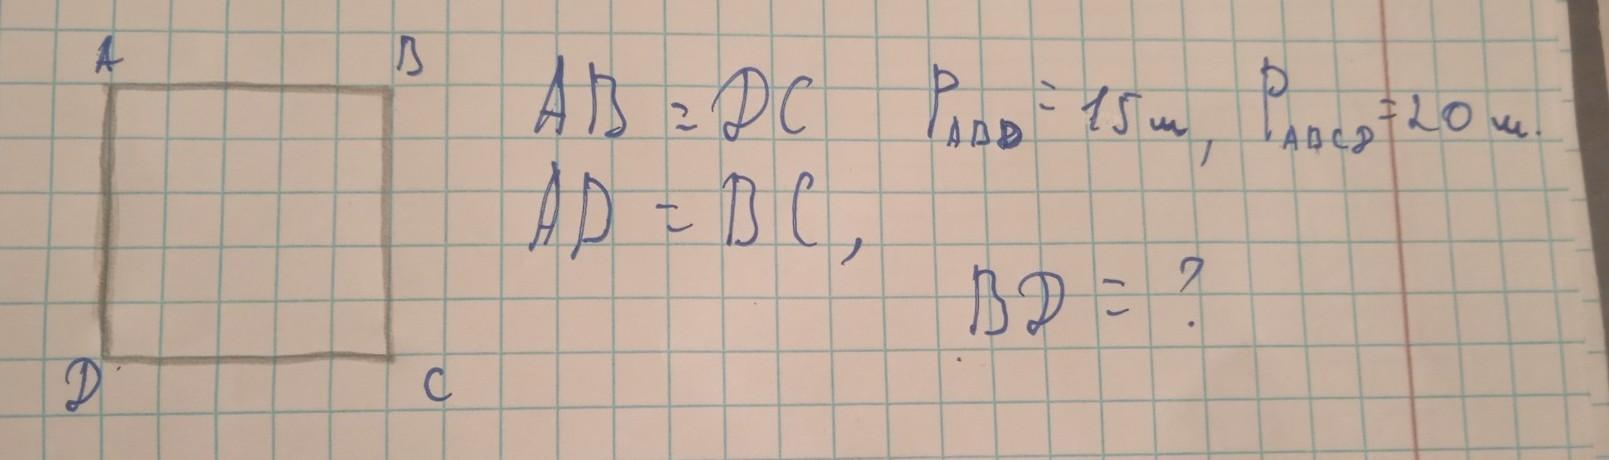 A B
AB = DC P ABD = 15 м, P ABCD = 20 м.
AD = BC,
BD = ?
D C